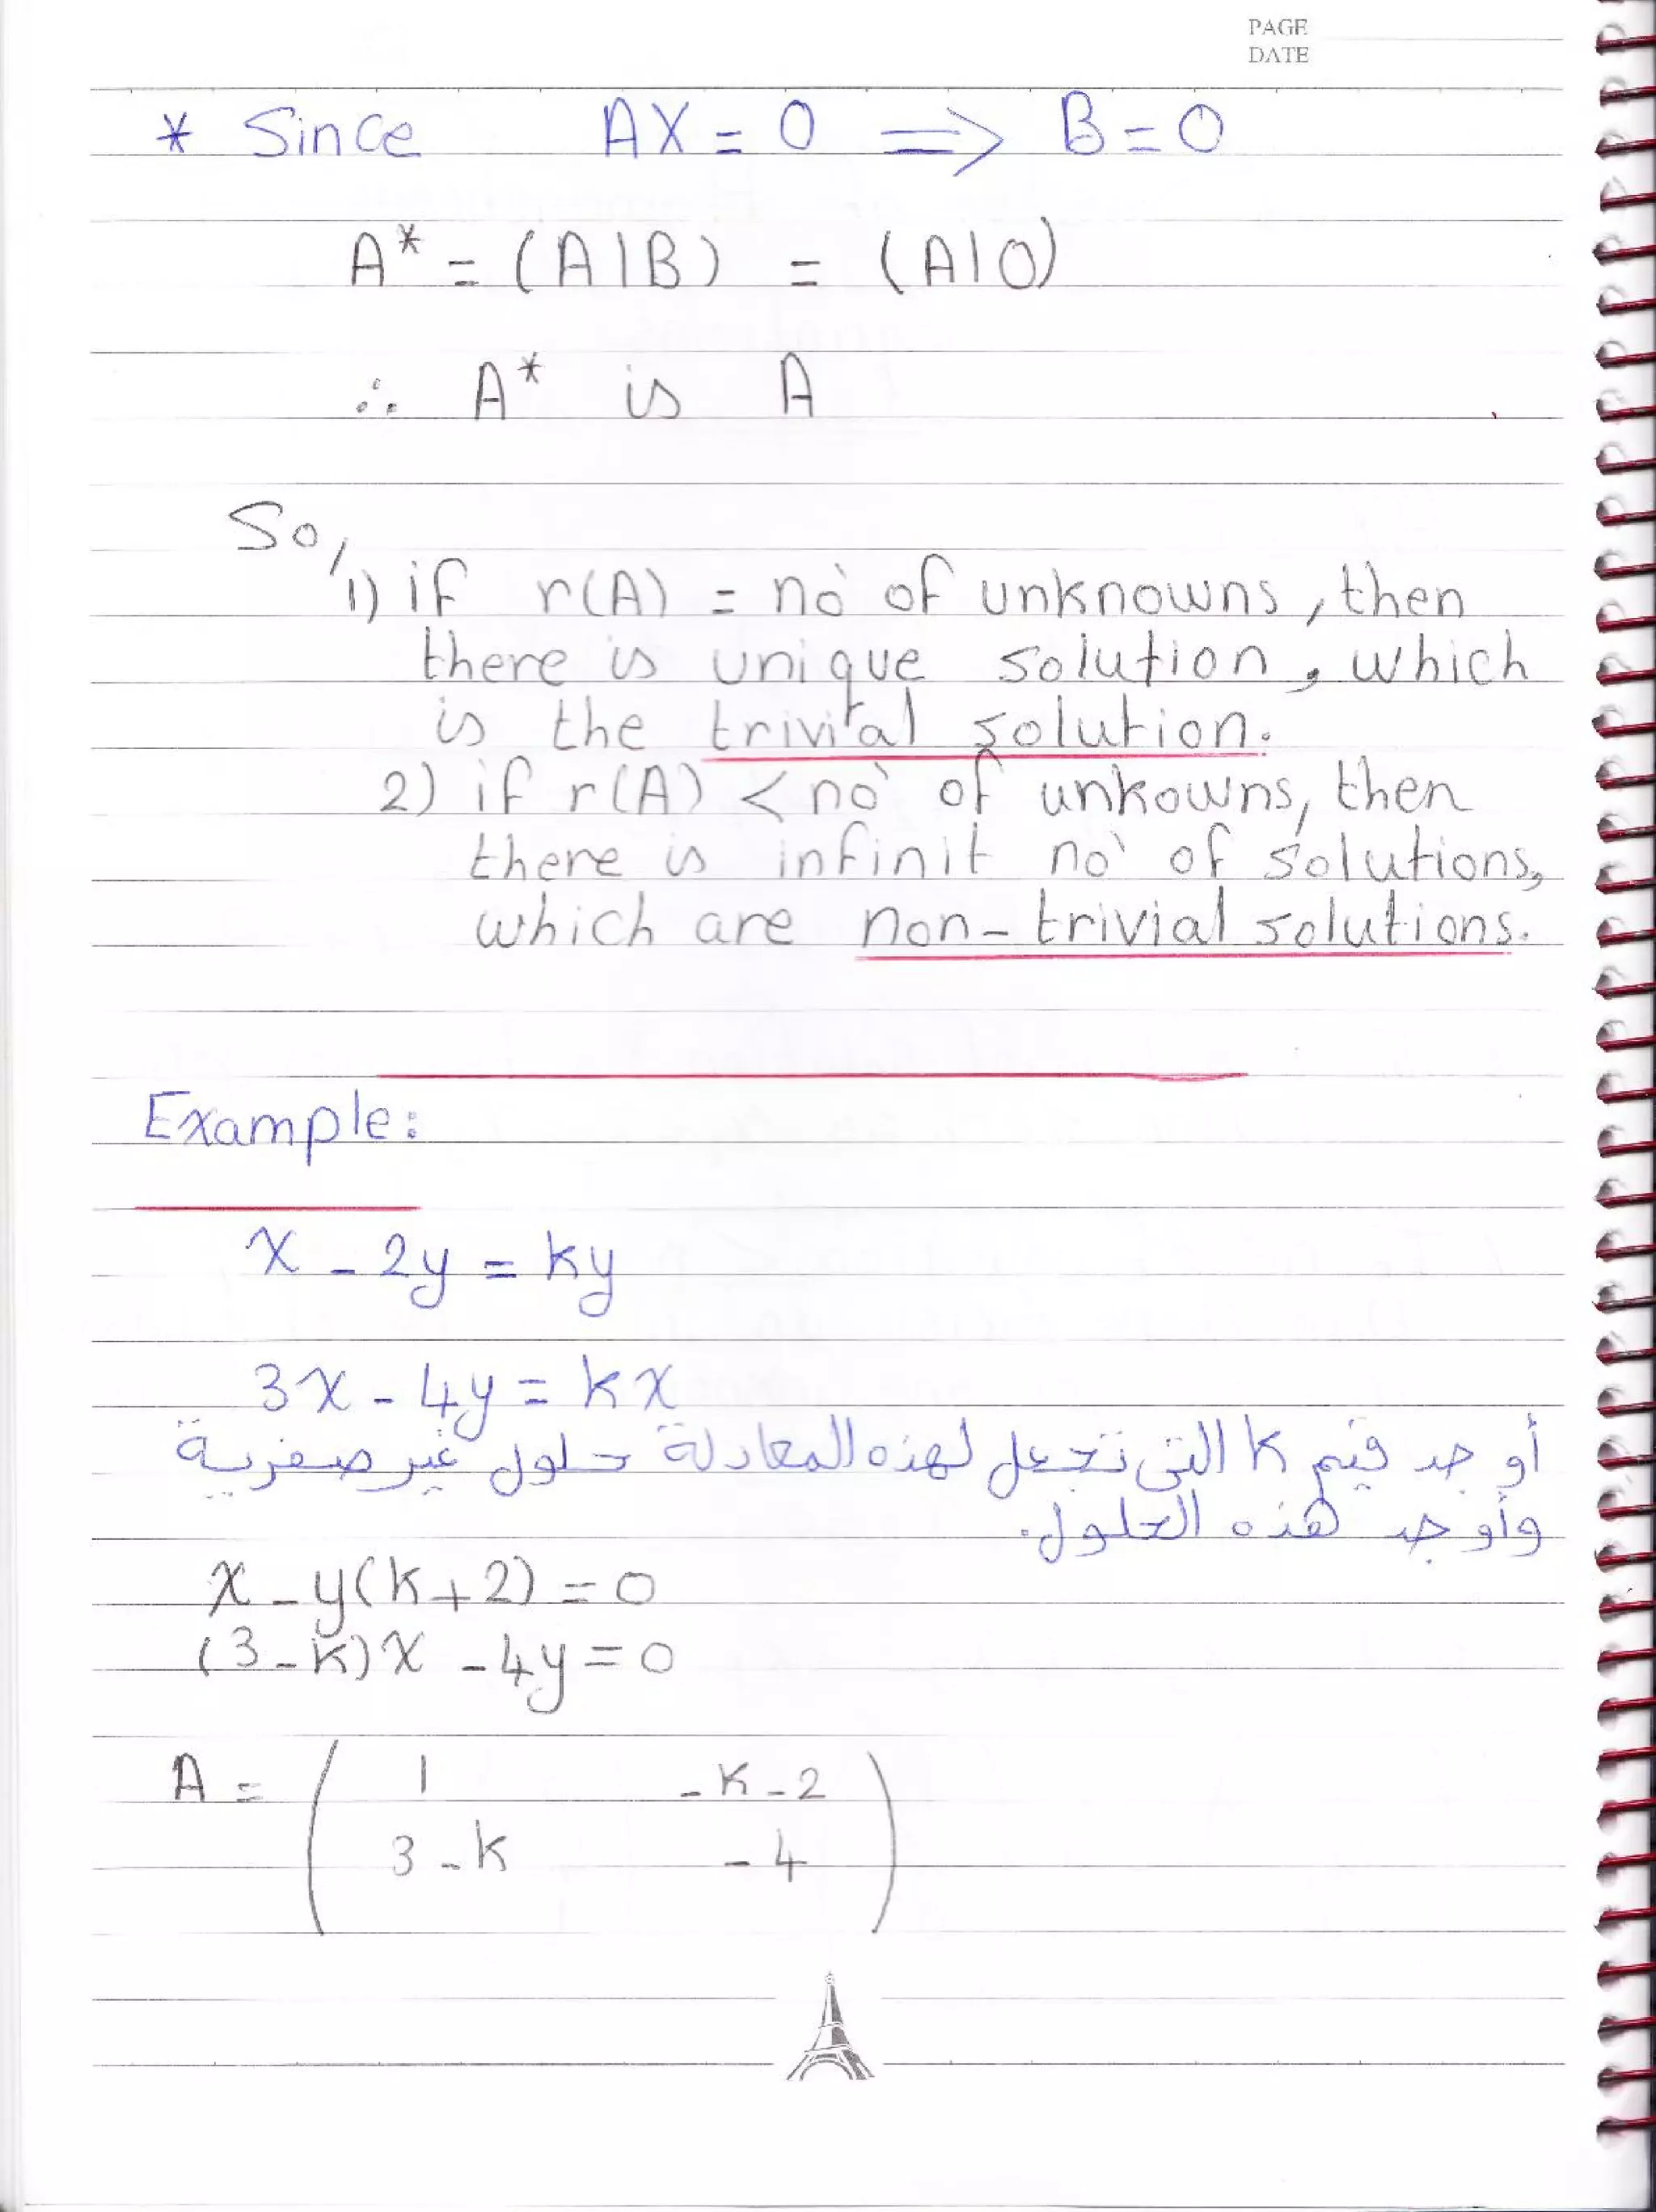 PAGE
DATE
* Since AX = 0 => B = 0
A* = (A|B) = (A|0)
∴ A* is A
So,
1) if r(A) = no of unknowns, then
there is unique solution, which
is the trivital solution.
2) if r(A) < no of unkowns, then
there is infinit no of solutions,
which are non-trivial solutions.
Example:
x - 2y = ky
3x - 4y = kx
أوجد قيم k التى تجعل لهذه المعادلة حلول غير صفرية
وأوجد هذه الحلول.
x - y(k+2) = 0
(3-k)x - 4y = 0
A = ( 1 -k-2
3-k -4 )